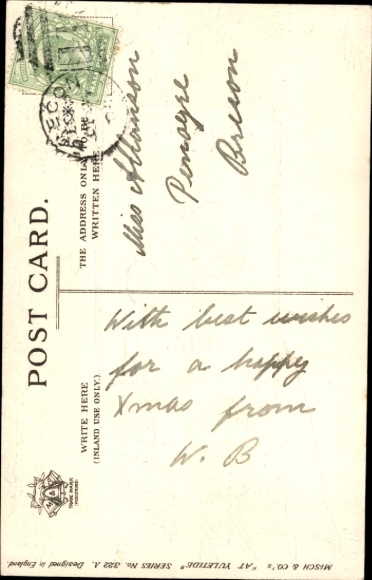 POST CARD.
THE ADDRESS ONLY TO BE
WRITTEN HERE
Miss
Penoyre
Brecon
WRITE HERE
(INLAND USE ONLY.)
With best wishes
for a happy
Xmas from
W. B
M & Co
TRADE MARK
MISCH & CO'S "AT YULETIDE" SERIES No. 322 A. Designed in England.